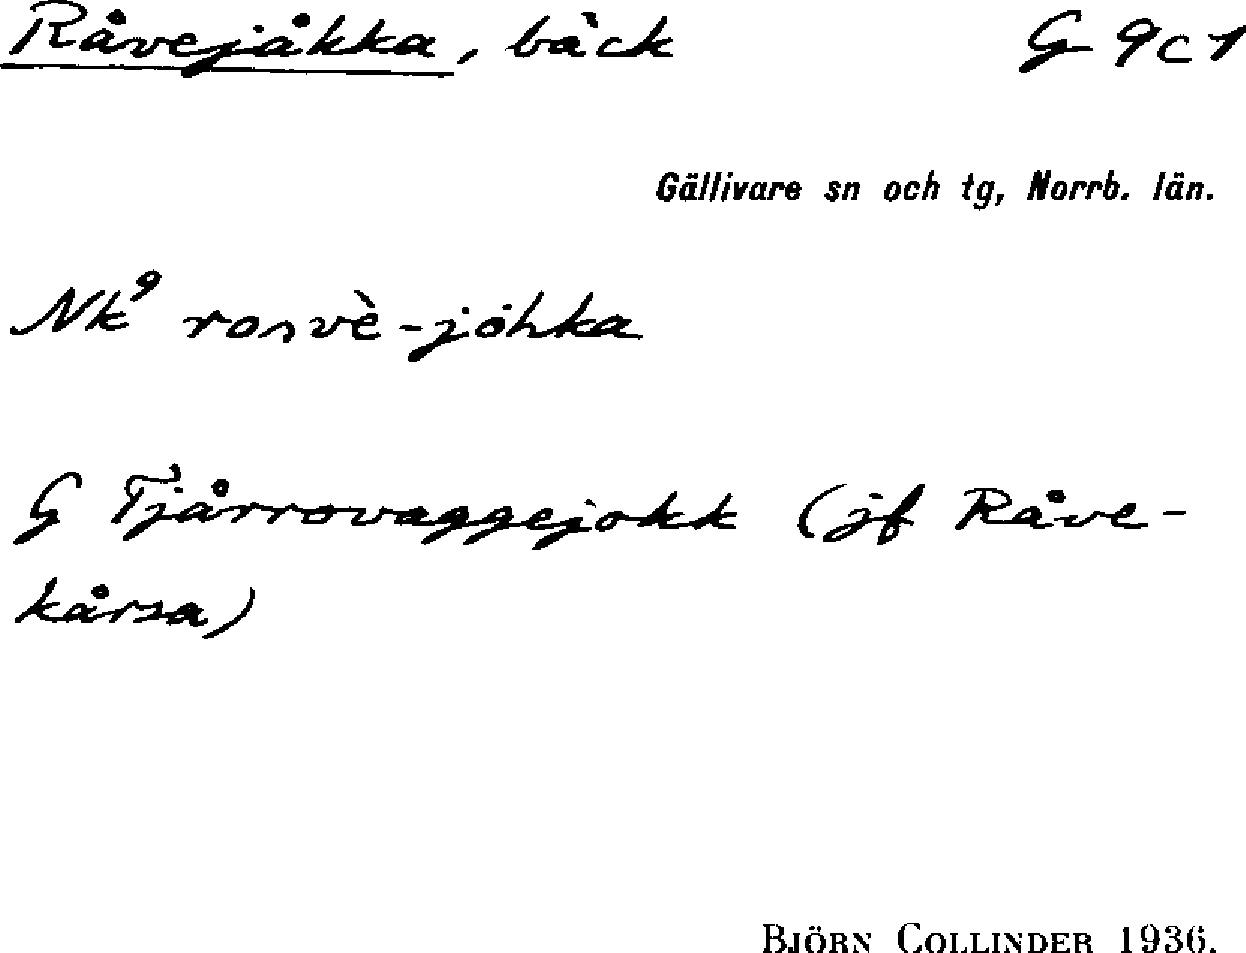 Råvejåkka, bäck G 9c1
Gällivare sn och tg, Norrb. län.
Nk⁹ rosvè-jóhka
G Tjårrovaggejokk (jf Råve-
kårsa)
BJÖRN COLLINDER 1936.